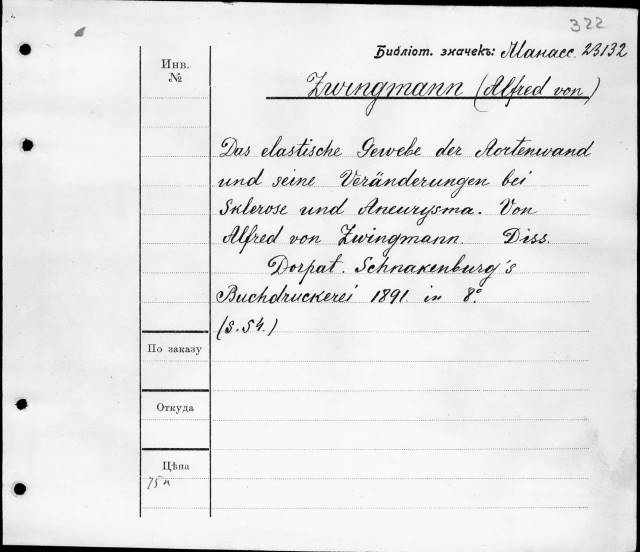 322
Библіот. значекъ: Манасс. 23132
Инв.
№
Zwingmann (Alfred von)
Das elastische Gewebe der Aortenwand
und seine Veränderungen bei
Sklerose und Aneurysma. Von
Alfred von Zwingmann. Diss.
Dorpat. Schnakenburg's
Buchdruckerei 1891. in 8.°
(S. 54.)
По заказу
Откуда
Цѣна